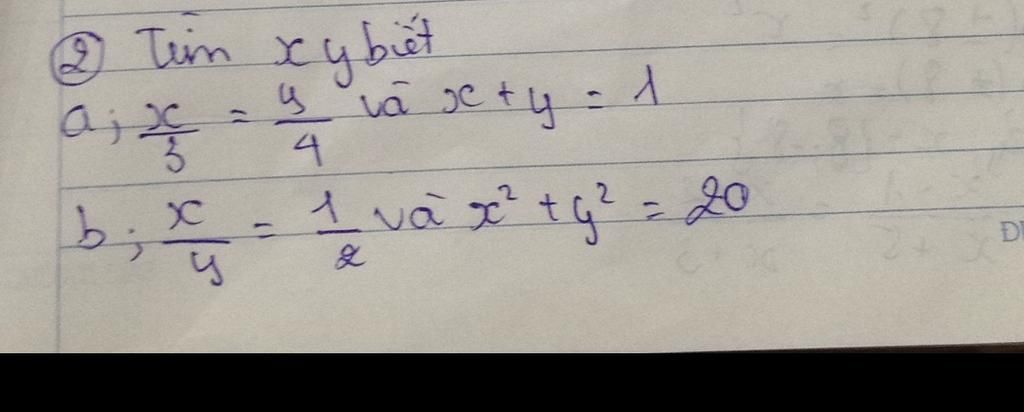 ② Tìm x y biết
a; x/3 = y/4 và x + y = 1
b; x/y = 1/2 và x² + y² = 20